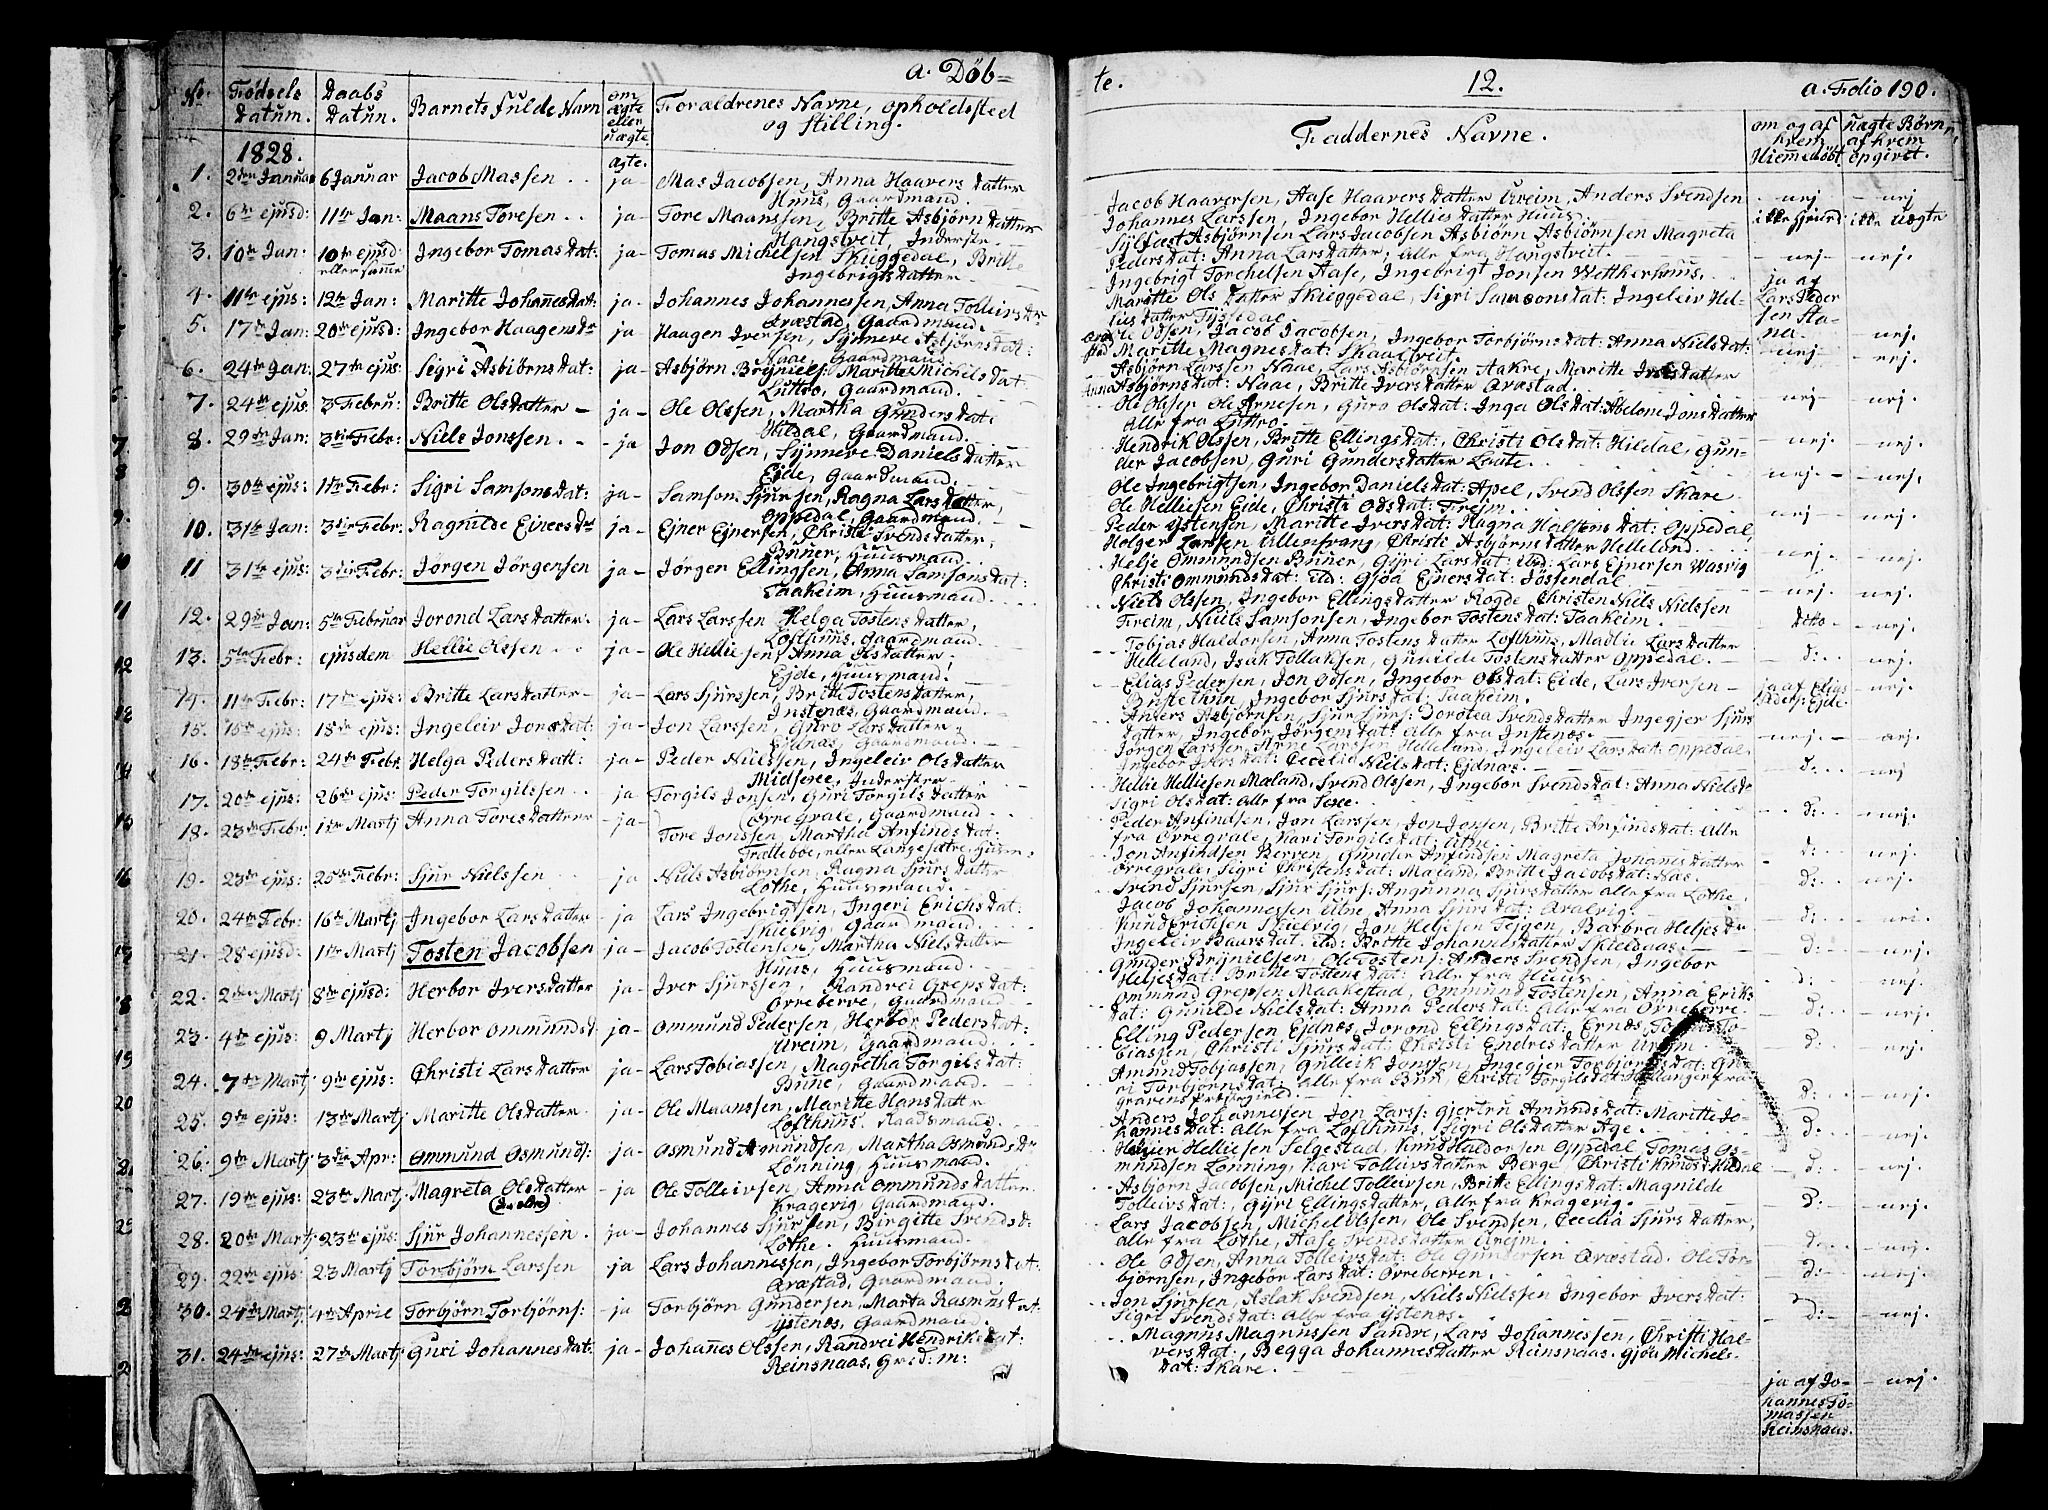 a. Döb=
No.
Födsels Datum.
Daabs Datum.
Barnets fulde Navn
om ægte eller uægte
Forældrenes Navne, opholdssted og Stilling.
1828.
ægte.
1. 2den Januar 6 Januar Jacob Massen ja Mas Jacobsen, Anna Haavers Datter
Huus, Gaardmand.
2. 6te ejusd: 11te Jan: Maans Toresen ja Tore Maanssen, Britte Asbjørn Datter
Hangstveit, Inderste
3. 10de Jan: 10de ejusd: eller samme Ingebor Tomas Dat: ja Tomas Michelsen Skuggedal, Britte
Ingebrigts Datter
4. 11te ejus: 12te Jan: Maritte Johannes Dat: ja Johannes Johannessen, Anna Tolleivs Dr
Aræstad, Gaardmand.
5. 17de Jan: 20de ejusd: Ingebor Haagens Dr ja Haagen Iversen, Synneve Asbjørns Dat:
Naae, Gaardmand.
6. 24de Jan: 27de ejus: Sigri Asbiørns Dat: ja Asbjørn Bryniels: Maritte Michels Dat
Lutto, Gaardmand.
7. 24de ejus: 3 Febru: Britte Ols Datter ja Ole Olssen, Martha Gunders Dat:
Hildal, Gaardmand.
8. 29de Jan: 3die Febr: Niels Jonssen ja Jon Odsen, Synneve Daniels Datter
Eide, Gaardmand.
9. 30te ejus: 1ste Febr: Sigri Samsons Dat: ja Samson Sjursen, Ragna Lars Datter,
Oppedal, Gaardmand.
10. 31te Jan: 3die Febr: Ragnilde Einers Dr ja Ejner Ejnersen, Christi Svends Datter,
Buuer, Huusmand.
11 31te ejus: 3die Febr: Jørgen Jörgensen ja Jørgen Ellingsen, Anna Samsons Dat:
Taaheim, Huusmand.
12. 29de Jan: 5te Februar Jorond Lars Datter ja Lars Larssen Helga Tostens Datter,
Lofthuus, Gaardmand.
13. 5te Febr: ejusdem Hellie Olssen ja Ole Helliesen, Anna Ols Datter
Ejde, Huusmand.
14. 11te Febr: 17de ejus: Britte Lars Datter ja Lars Sjurssen, Britte Tostens Datter,
Instenæs, Gaardmand.
15. 16de ejus: 18de ejus: Ingeleiv Jons Dat: ja Jon Larssen, Guro Lars Datter
Ejdnæs, Gaardmand.
16. 18de Febr: 24de Febr: Helga Peders Datt: ja Peder Nielssen, Ingeleiv Ols Datter
Midsexe, Inderster
17. 20de ejus: 26de ejus: Peder Torgilssen ja Torgils Jonsen, Guri Torgils Datter
Øvre Grate, Gaardmand
18. 23de Febr: 1ste Martj Anna Tores Datter ja Tore Jonssen, Martha Anfinds Dat:
Trætteboe, eller Langesætre, Husm.
19. 23de ejus: 25de Febr: Sjur Nielssen ja Niels Asbiørnsen, Ragna Sjurs Datter
Lothe, Huusmand.
20. 24de Febr: 16de Martj Ingebor Lars Datter ja Lars Ingebrigtsen, Ingeri Erichs Dat:
Skielvig, Gaardmand.
21. 28 ejusd: 1ste Martj Tosten Jacobsen ja Jacob Tostensen, Martha Niels Datter
Huus, Huusmand.
22. 2den Martj 8de ejusd: Herbor Ivers Datter ja Iver Sjurssen, Randvei Greps Dat:
Ovreberve, Gaardmand
23. 4de ejus: 9 Martj Herbor Ommunds d. ja Ommund Pedersen, Herbor Peders Dat:
Ureim, Gaardmand.
24. 7de Martj 9de ejus: Christi Lars Datter ja Lars Tobiassen, Magretha Torgils Dat:
Bune, Gaardmand.
25. 9de ejus: 13de Martj Maritte Ols Datter ja Ole Maanssen, Maritte Hans Datter
Lofthuus. Raadsmand.
26. 9de Martj 3die Apr: Ommund Osmunds: ja Osmund Amundsen, Martha Osmunds Dr
Lønning, Huusmand.
27. 19de ejus: 23de Martj Magreta Ols Datter ja Ole Tolleivsen, Anna Ommunds Datter
Kragevig, Gaardmand.
28. 20de Martj 23de ejus: Sjur Johannessen. ja Johannes Sjursen, Birgitte Svends D:
Lothe. Huusmand.
29. 22de ejus: 23 Martj Torbjörn Larssen ja Lars Johannessen, Ingebor Torbjørns Dat:
Aræstad, Gaardmand.
30. 24de Martj 4de April Torbjörn Torbjörns: ja Torbjörn Gundersen, Marta Rasmus Dat:
Ystenæs, Gaardmand.
31. 24de ejus: 27de Martj Guri Johannes Dat: ja Johanes Olssen, Randvei Hendriks Dat:
Reinsnaas, Grd: m:
te. 12. a. Folio 190.
Faddernes Navne.
om og af hvem Hiemmedöbt
uægte Børn, af hvem opgivet.
Jacob Haaversen, Aase Haavers Datter Ureim, Anders Svendsen nej nej
Johannes Larssen, Ingebor Hellies Datter Huus.
Sylfast Asbjørnsen Lars Jacobsen Asbiørn Asbiørnsen Magreta ikke uægte
Peders Dat: Anna Lars Datter; alle fra Hangstveit. nej nej.
Ingebrigt Torchelsen Aase, Ingebrigt Jonsen
Maritte Ols Datter Skuggedal, Sigri Samsons Dat: Ingeleiv Hel-
lies Datter Tyssedal. ja af Lars Peder
Odsen, Jacob Jacobsen, Ingebor Torbjørns Dat: Anna Niels Dat: nej.
Maritte Magnes Dat: Skaaltveit. nej nej.
Asbjørn Larssen Naae, Lars Asbiørnsen Aakre, Maritte Ivers Datter
Anna Asbjørns Dat: Naae, Britte Ivers Datter Aræstad. nej nej.
Ole Olsen Ole Arnesen, Guro Ols Dat: Inga Ols Dat: Abelone Jons Datter
Alle fra Lutto. nej. nej.
Hendrik Olssen, Britte Ellings Dat:, Christi Ols Dat: Hildal, Gun-
der Jacobsen, Guri Gunders Datter Lante. nej. nej.
Ole Ingebrigtsen, Ingebor Daniels Dat: Apel, Svend Olssen Skare
Ole Helliesen Eide, Christi Ods Dat: Freim. nej nej.
Peder Ystensen, Maritte Ivers Dat: Ragna Halstens Dat: Oppedal,
Holger Larsen Ullensvang, Christi Asbjørns Datter Helleland. nej. nej.
Helje Ommundsen Buuer, Gyri Lars Dat: ibid: Lars Ejnersen Wasvig
Christi Ommunds Dat: ibid: Gjøa Ejners Dat: Jøssendal. nej. nej.
Niels Olssen, Ingebor Ellings Datter Rogde Christen Niels Nielssen
Freim, Niels Samsonsen, Ingebor Tostens Dat: Taaheim. Ditto nej.
Tobias Haldorsen, Anna Tostens Datter Lofthuus, Madli Lars Datter
Helleland, Isak Tollaksen, Gunilde Tostens Datter Oppedal. d: nej.
Elias Pedersen, Jon Odsen, Ingebor Ols Dat: Eide, Lars Iversen ja af Elias nej.
Bustethun, Ingebor Sjurs Dat: Taaheim. Peders: Ejde
Anders Asbjørnsen, Sjur Sjurs: Dorotea Svends Datter Ingegjer Sjurs
Datter, Ingebor Jørgens Dat: alle fra Instenæs. nej. nej.
Jörgen Larssen, Arne Larssen Helleland, Ingeleiv Lars Dat: Oppedal.
Ingebor Ivers Dat: Cecelia Niels Dat: Ejdnæs. d: nej
Hellie Helliesen Mæland, Svend Olssen, Ingebor Svends Dat: Anna Niels Dr
Sigri Ols Dat: alle fra Sexe. d: nej.
Peder Anfindsen, Jon Larssen, Jon Jonsen, Britte Anfinds Dat: Alle
fra Övregrate, Kari Torgils Dat: Utne. d: nej.
Jon Anfindsen Berven, Gunder Anfindsen Magreta Johanes Datter
Øvregrate, Sigri Christens Dat: Maland, Britte Jacobs Dat: Naa. d: nej.
Svend Sjursen, Sjur Sjurs: Angunna Sjurs Datter alle fra Lothe.
Jacob Johannessen Utne, Anna Sjurs Dat: Aralvig. d: nej.
Knud Erichsen Skielvig, Jon Heljesen Tejgen, Barbra Heljes Dr
Ingeleiv Baars Dat. ibid: Britte Johannes Datter Skieldaas. d: nej.
Gunder Brynielsen, Ole Tostens: Anders Svendsen, Ingebor
Heljes Dat: Britte Tostens Dat: alle fra Huus. d: nej.
Ommund Grepsen Maakestad, Ommund Tostensen, Anna Eriks
Dat: Gunilde Niels Dat: Anna Peders Dat: alle fra Øvreberve. d: nej.
Elling Pedersen Ejdnæs, Jorond Ellings Dat: Ernæs,
biassen, Christi Sjurs Dat: Christi Endres Datter Ureim. d: nej.
Amund Tobiassen, Gulleik Jonssen, Ingegjer Torbjørns Dat: Gu-
ri Torbjørns Dat: alle fra Bun, Christi Torgils Dat:
gravens Præstegield. d: nej.
Anders Johannesen Jon Larss: Gjertru Amunds Dat: Maritte Jo-
hannes Dat: alle fra Lofthuus, Sigri Ols Datter Age. d: nej.
Helliesen Selgestad, Knud Haldorsen Oppedal Tomas Os-
mundsen Lönning, Kari Tolleivs Datter Berge, Christi Knuds d: Hildal d: nej.
Asbjørn Jacobsen, Michel Tolleivsen, Britte Ellings Dat: Magnilde
Tolleivs Dat:, Gyri Ellings Datter, Alle fra Kragevig. d: nej.
Lars Jacobsen, Michel Olssen, Ole Svendsen, Cecelia Sjurs Datter,
alle fra Lothe, Aase Svends Datter Ureim. d: nej.
Ole Odsen, Anna Tolleivs Dat: Ole Gundersen Aræstad. Ole Tor-
bjørnsen, Ingebor Lars Dat: Øvreberven. d: nej.
Jon Sjursen, Aslak Svendsen, Niels Nielssen Ingebor Ivers Dat:
Sigri Svends Dat: Alle fra Ystenæs. d: nej.
Magnus Magnussen Sandre, Lars Johannessen, Christi Hal-
vers Dat:, Begga Johannes Datter Reinsnaas. Gjøa Michels-
Dat: Skare.
ja af Jo- nej.
hannes To-
massen
Reinsnaas.